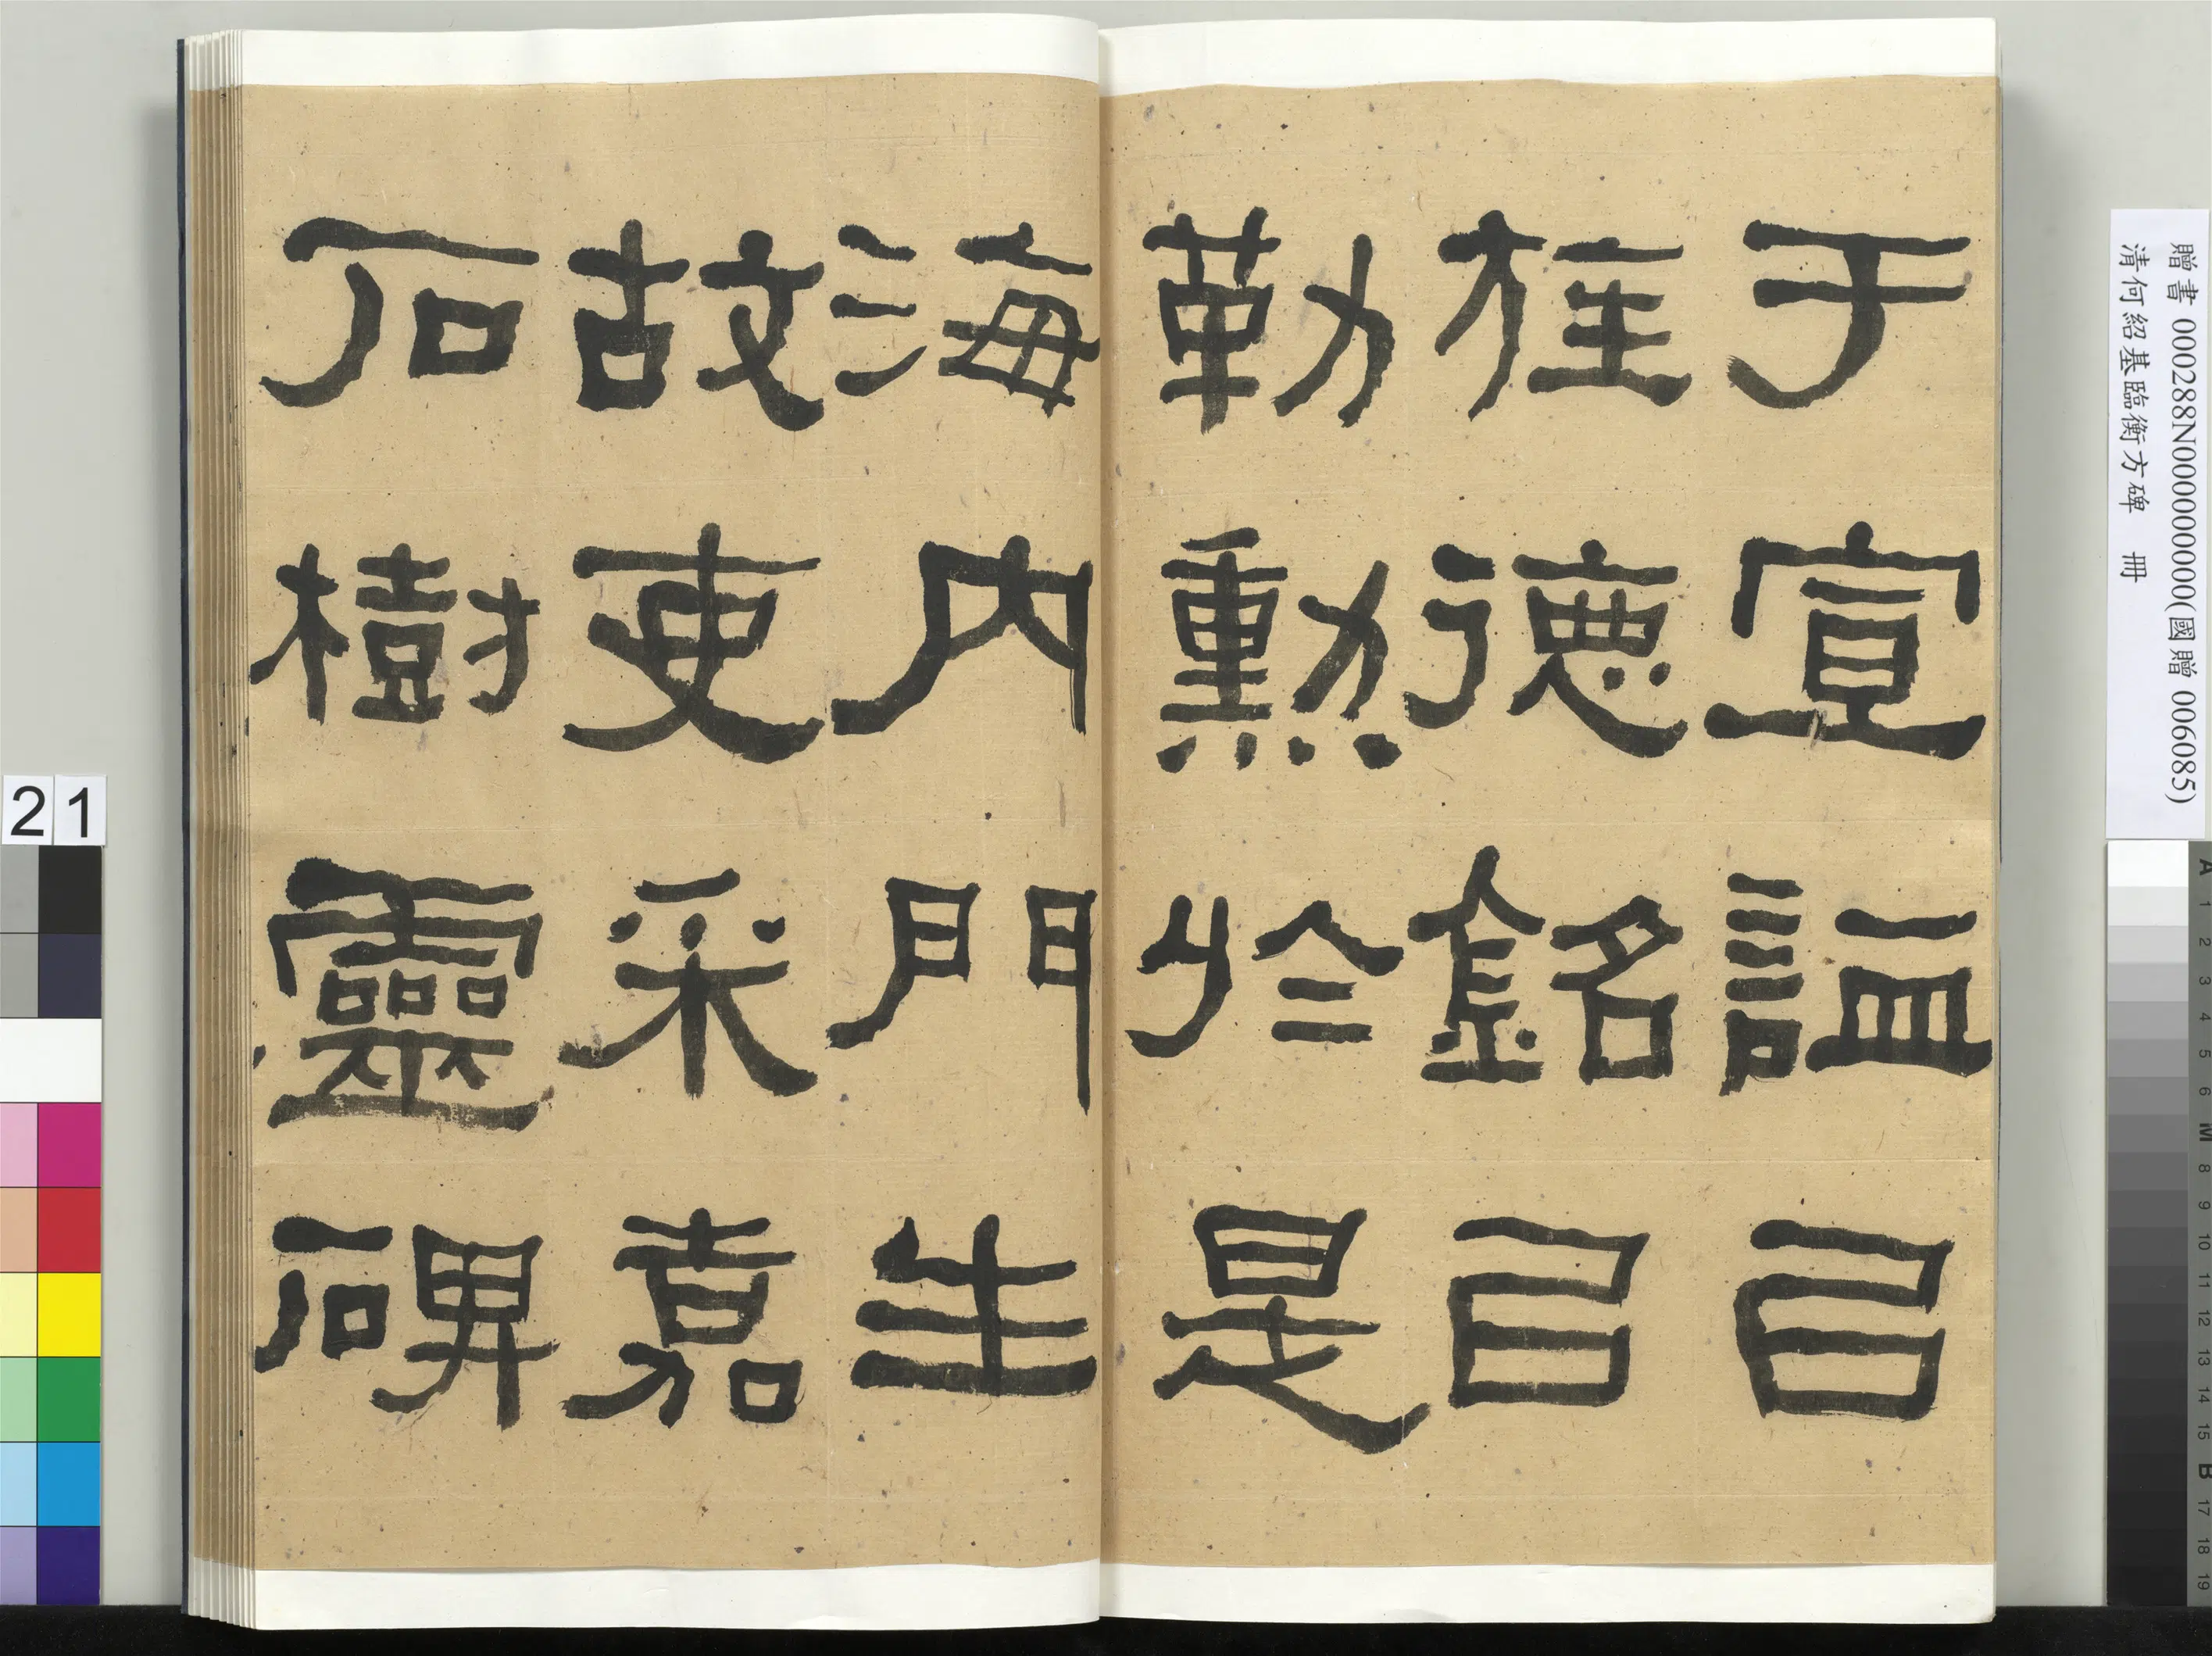 于宣謚㠯
旌德銘㠯
勒勳於是
海內門生
故吏采嘉
石樹靈碑
贈書 000288N000000000(國贈 006085)
清何紹基臨衡方碑 冊
21
A 1 2 3 4 5 6 M 8 9 10 11 12 13 14 15 B 17 18 19